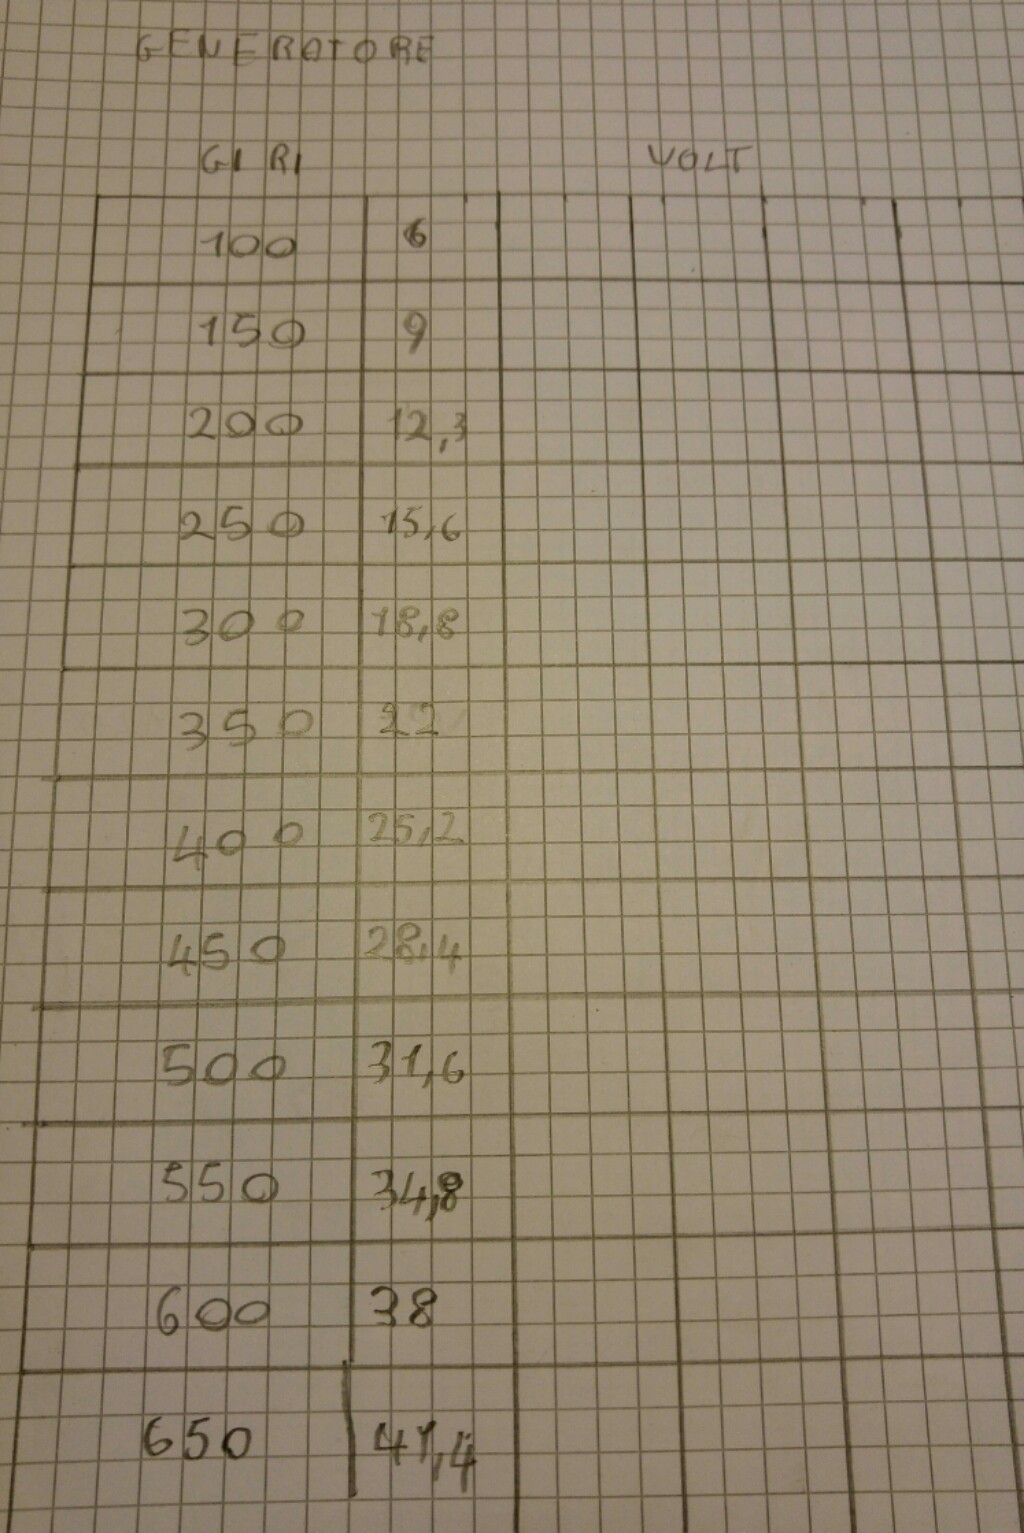 GENERATORE
GIRI VOLT
100 6
150 9
200 12,3
250 15,6
300 18,8
350 22
400 25,2
450 28,4
500 31,6
550 34,8
600 38
650 41,4